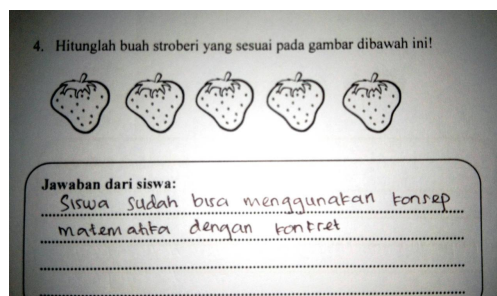 4. Hitunglah buah stroberi yang sesuai pada gambar dibawah ini!
Jawaban dari siswa:
Siswa sudah bisa menggunakan konsep
matematika dengan konkret